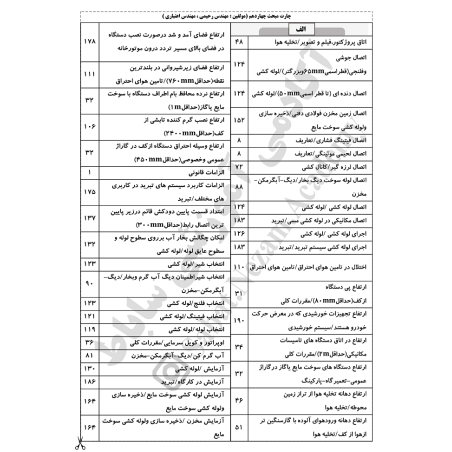 چارت مبحث چهاردهم (مولفین: مهندس رحیمی، مهندس اعتباری)
الف
اتاق پروژکتور،فیلم و تصویر/تخلیه هوا ۴۸
اتصال جوشی
وفلنجی(قطراسمی ۶۵mm وبزرگتر)/لوله کشی ۱۲۴
اتصال دنده ای (تا قطر اسمی ۵۰mm)/لوله کشی ۱۲۴
اتصال زمین مخزن فولادی دفنی/ذخیره سازی
ولوله کشی سوخت مایع ۱۵۲
اتصال فیتینگ فشاری/تعاریف ۸
اتصال لحیمی موئینگی/تعاریف ۸
اتصال لرزه گیر/کانال کشی ۷۲
اتصال لوله سوخت دیگ بخار/دیگ-آبگرمکن-
مخزن ۸۸
اتصال لوله کشی /لوله کشی ۱۲۴
اتصال مکانیکی در لوله کشی مسی/تبرید ۱۸۳
اجرای لوله کشی /لوله کشی ۱۲۶
اجرای لوله کشی سیستم تبرید/تبرید ۱۸۳
اختلال در تامین هوای احتراق/تامین هوای احتراق ۱۱۰
ارتفاع پی دستگاه
ازکف(حداقل ۸۰mm)/مقررات کلی ۳۱
ارتفاع تجهیزات خورشیدی که در معرض حرکت
خودرو هستند/سیستم خورشیدی ۱۹۰
ارتفاع در اتاق دستگاه های تاسیسات
مکانیکی(حداقل ۲m)/مقررات کلی ۳۴
ارتفاع دستگاه های سوخت مایع یاگاز درگاراژ
عمومی-تعمیرگاه-پارکینگ ۳۲
ارتفاع دهانه تخلیه هوا از تراز زمین
محوطه/تخلیه هوا ۴۶
ارتفاع دهانه ورودهوای آلوده با گازسنگین تر
ازهوا از کف/تخلیه هوا ۵۱
ارتفاع فضای آمد و شد درصورت نصب دستگاه
در فضای بالای مسیر تردد درون موتورخانه ۱۷۸
ارتفاع فضای زیرشیروانی در بلندترین
نقطه(حداقل ۷۶۰mm)/تامین هوای احتراق ۱۱۱
ارتفاع نرده محافظ بام اطراف دستگاه با سوخت
مایع یاگاز(حداقل ۱m) ۳۲
ارتفاع نصب گرم کننده تابشی از
کف(حداقل ۲۴۰۰mm) ۱۰۶
ارتفاع وسیله احتراق دستگاه ازکف در گاراژ
عمومی وخصوصی(حداقل ۴۵۰mm) ۳۲
الزامات قانونی ۱
الزامات کاربرد سیستم های تبرید در کاربری
های مختلف/تبرید ۱۷۵
امتداد قسمت پایین دودکش قائم درزیر پایین
ترین اتصال رابط(حداقل ۳۰۰mm) ۱۳۷
امکان چگالش بخار آب برروی سطوح لوله و
سطوح عایق لوله/لوله کشی ۱۳۲
انتخاب شیر/لوله کشی ۱۲۳
انتخاب شیراطمینان دیگ آب گرم وبخار/دیگ-
آبگرمکن-مخزن ۹۰
انتخاب فلنج/لوله کشی ۱۲۳
انتخاب فیتینگ/لوله کشی ۱۲۱
انتخاب لوله/لوله کشی ۱۱۹
اوپراتور و کویل سرمایی/مقررات کلی ۳۶
آب گرم کن/دیگ-آبگرمکن-مخزن ۸۱
آزمایش /لوله کشی ۱۳۰
آزمایش در کارگاه/تبرید ۱۸۶
آزمایش لوله کشی سوخت مایع/ذخیره سازی
ولوله کشی سوخت مایع ۱۶۴
آزمایش مخزن /ذخیره سازی ولوله کشی سوخت
مایع ۱۶۴